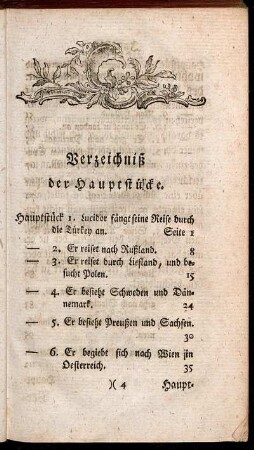 Verzeichniß
der Hauptstücke.
Hauptstück 1. Lucidor fängt seine Reise durch
die Türkey an. Seite 1
— 2. Er reiset nach Rußland. 8
— 3. Er reiset durch Liefland, und be-
sucht Polen. 15
— 4. Er besieht Schweden und Dän-
nemark. 24
— 5. Er besieht Preußen und Sachsen.
30
— 6. Er begiebt sich nach Wien in
Oesterreich. 35
)( 4 Haupt-